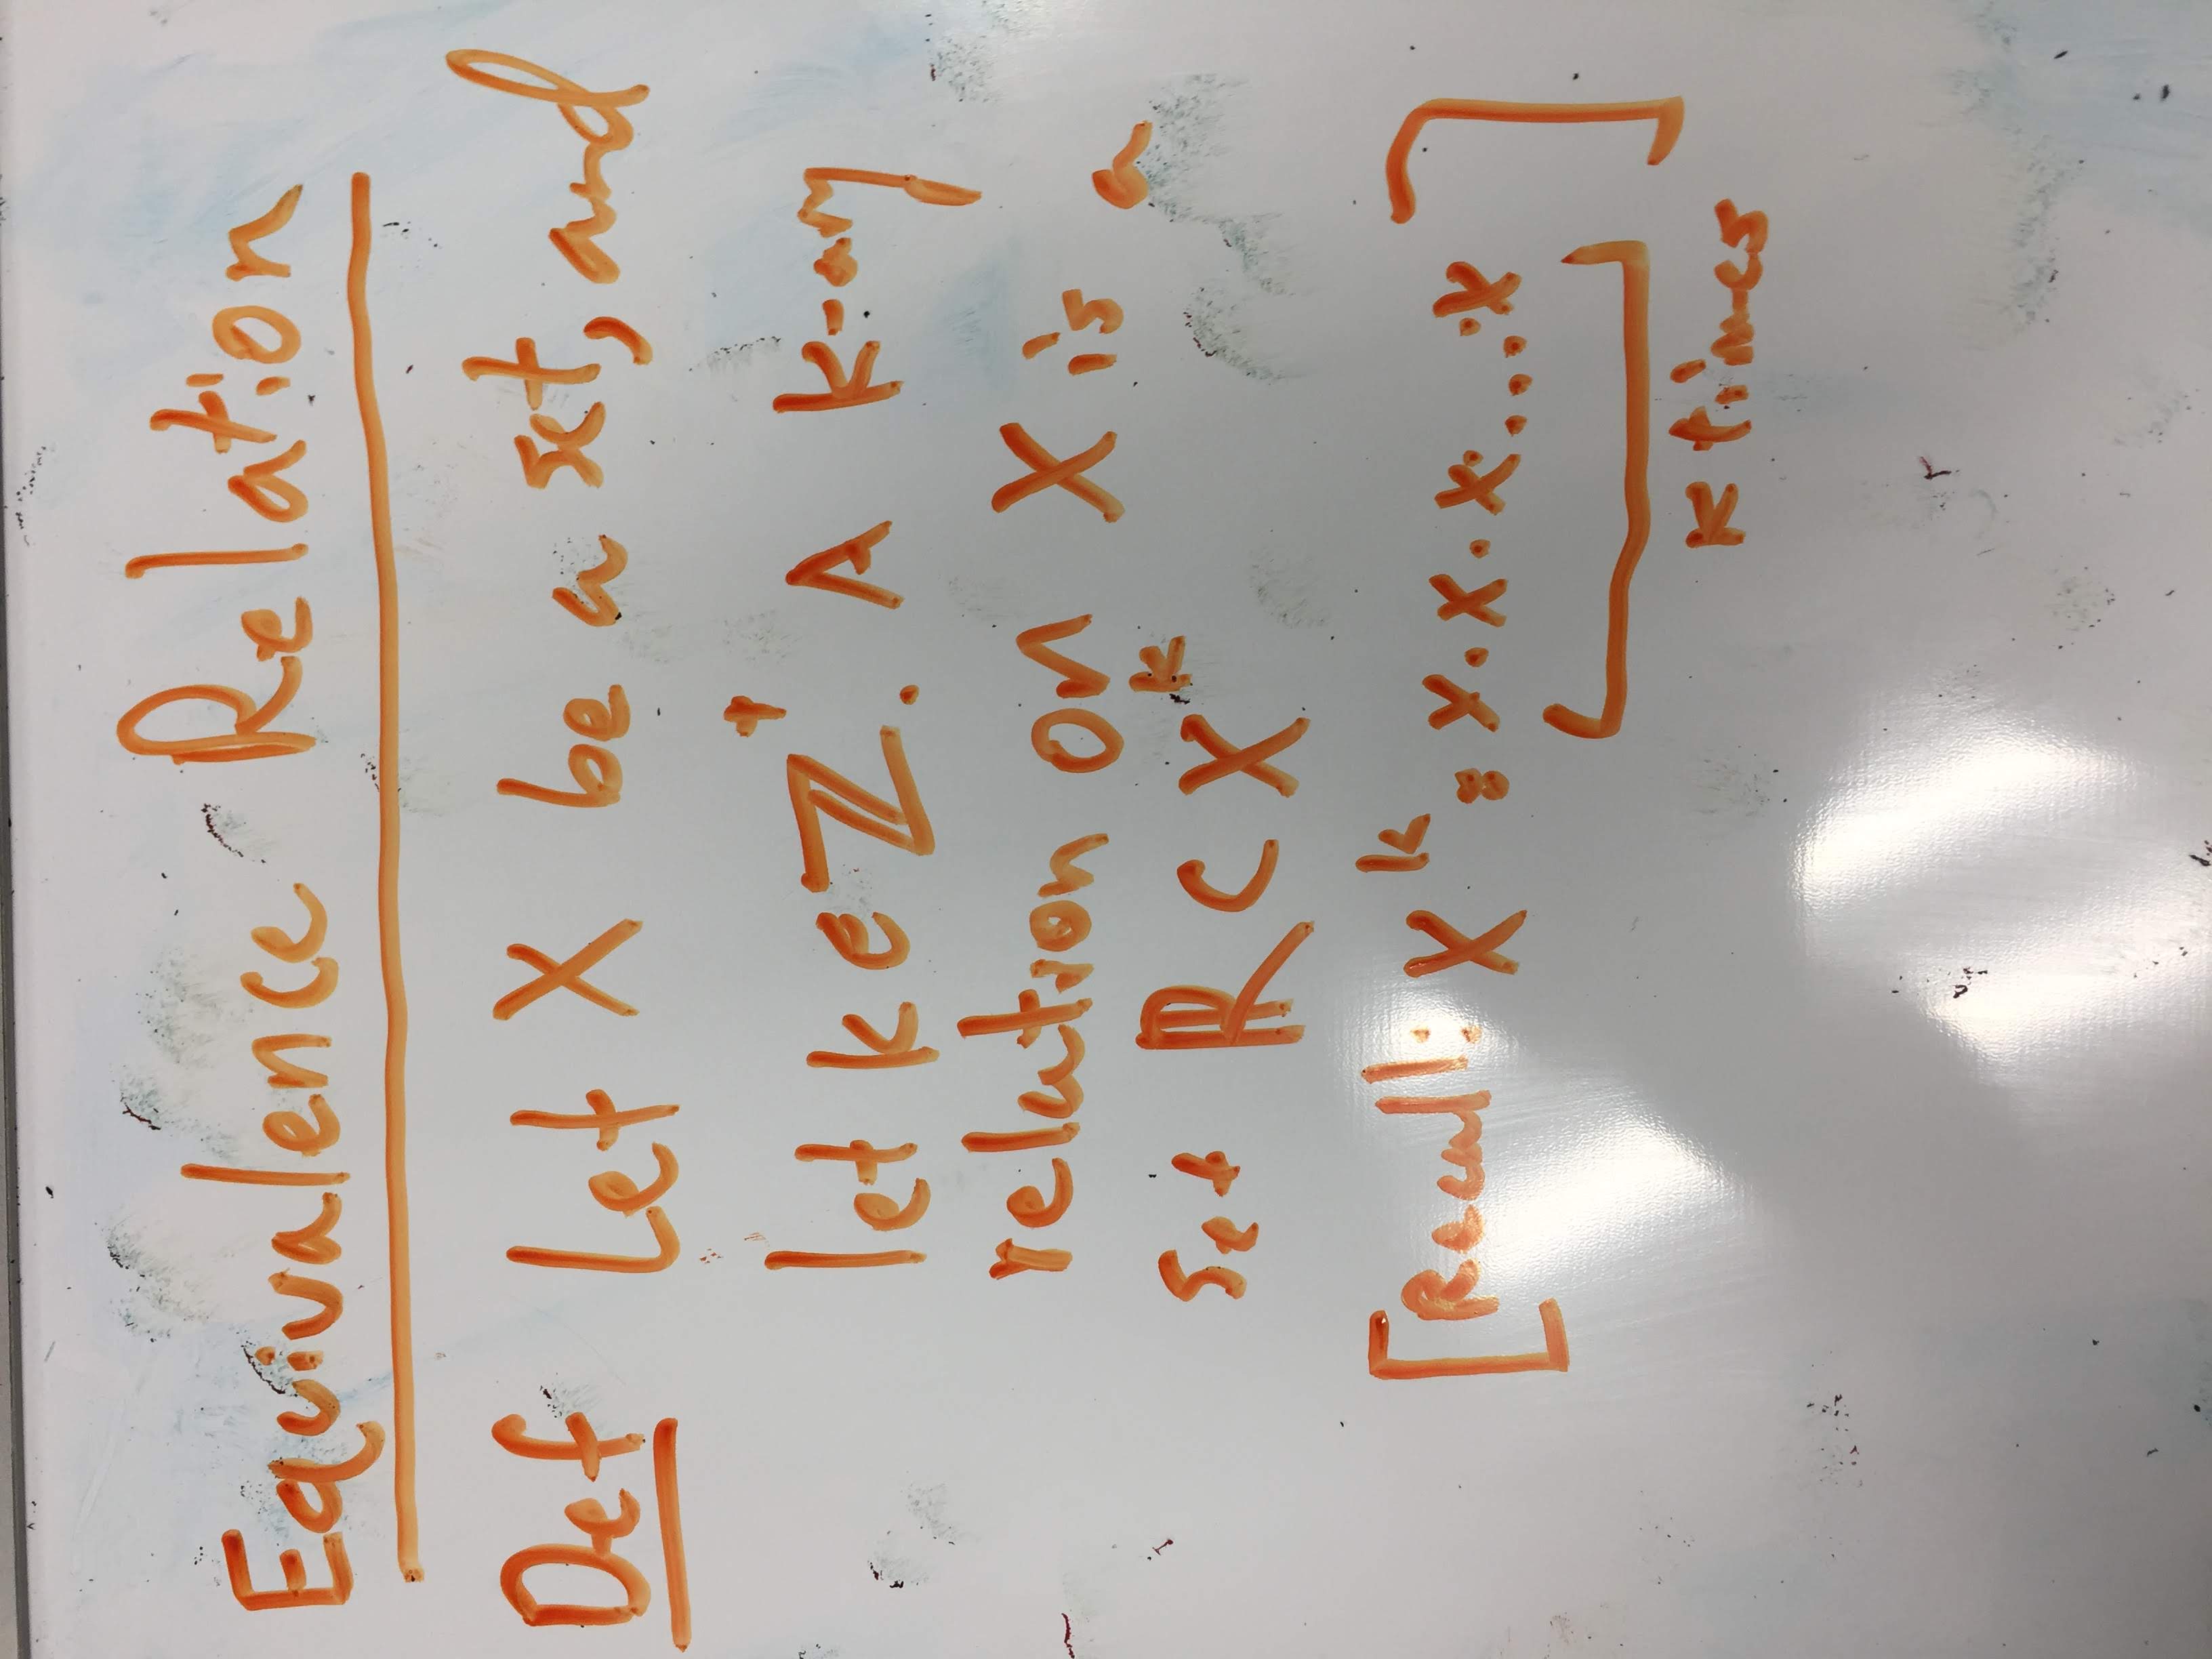 Equivalence Relation
Def Let X be a set, and
let k ∈ ℤ⁺. A k-ary
relation on X is a
set ℝ ⊂ Xᵏ
[Recall: Xᵏ = X·X·X·...·X]
k times